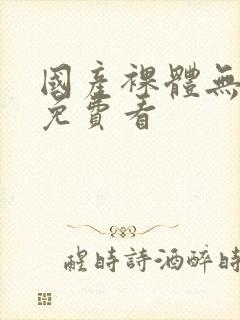 國產裸體無
免費看
醒時詩酒醉時